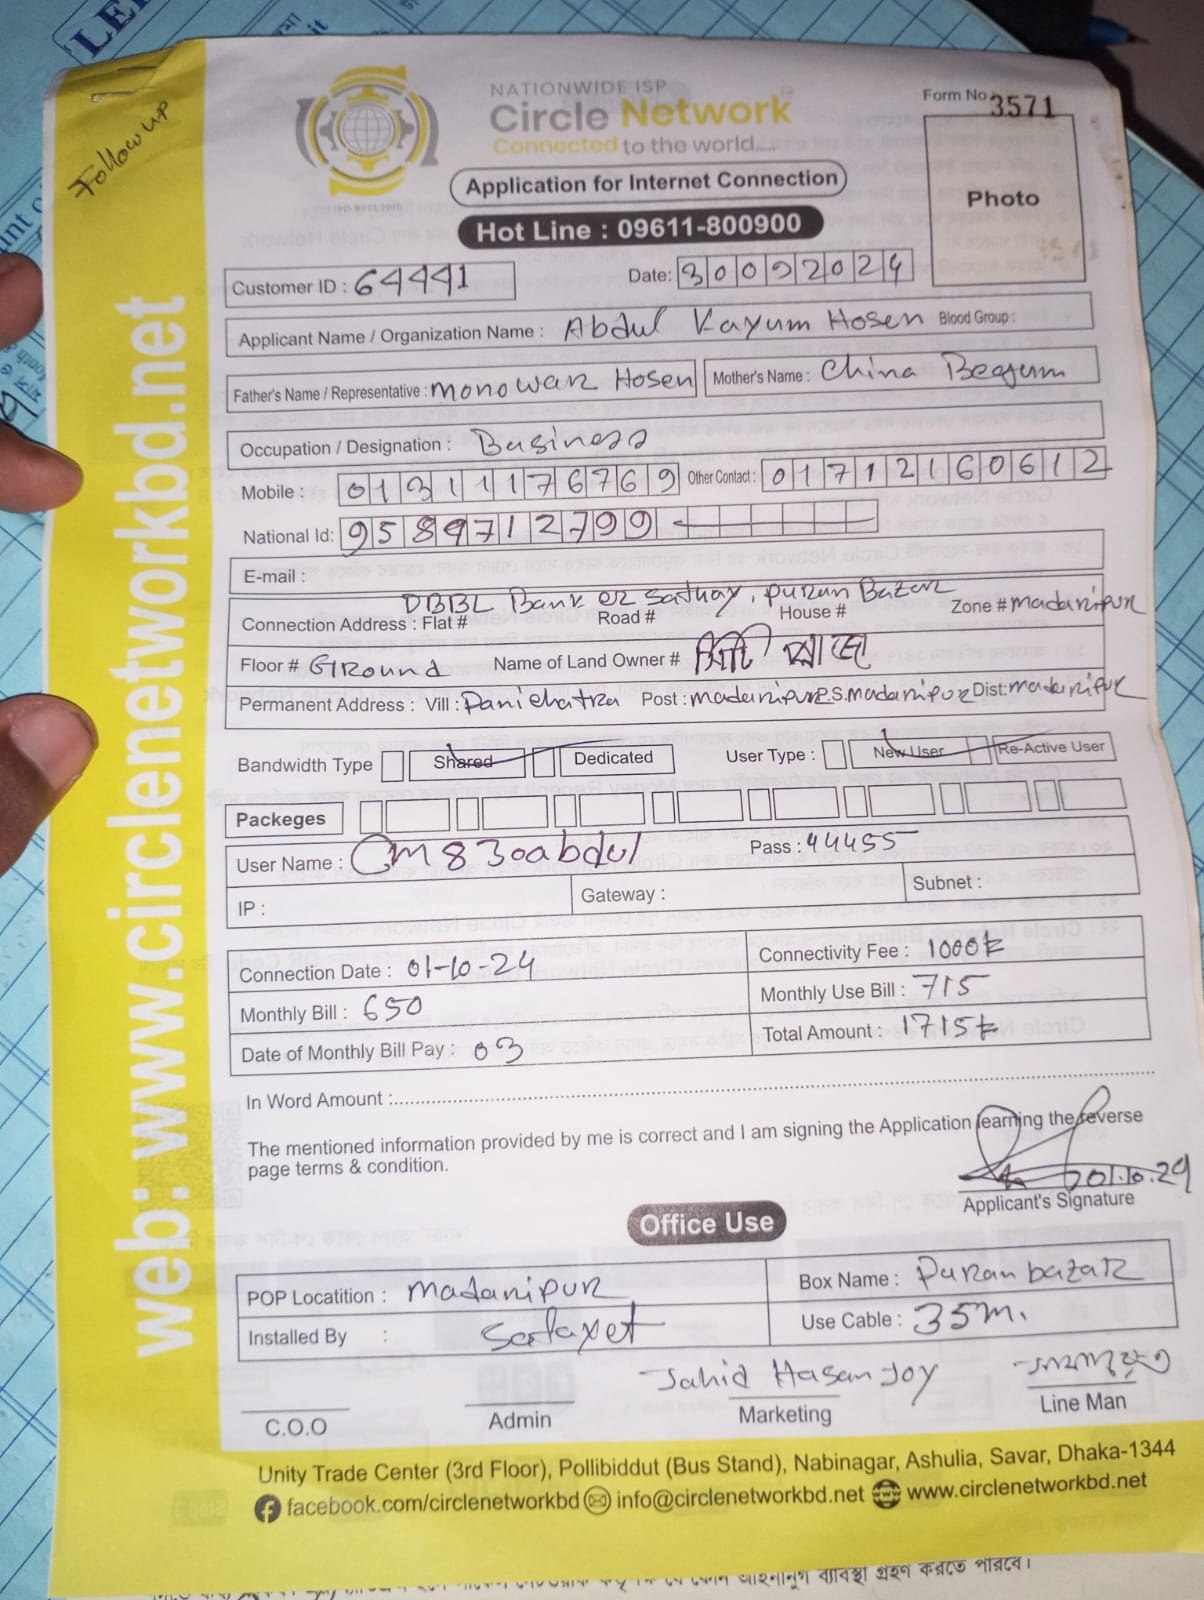 Follow up
NATIONWIDE ISP
Circle Network
Connected to the world.....
ISO 9001:2015
Form No 3571
Photo
Application for Internet Connection
Hot Line : 09611-800900
Customer ID : 64441 Date: 30092024
Applicant Name / Organization Name : Abdul Kayum Hosen Blood Group :
Father's Name / Representative : Monowar Hosen Mother's Name : China Beagum
Occupation / Designation : Business
Mobile : 01311176769 Other Contact : 01712160612
National Id: 9589712799
E-mail :
DBBL Bank er Sathay, Puran Bazar
Connection Address : Flat # Road # House # Zone # Madaripur
Floor # Ground Name of Land Owner #
Permanent Address : Vill : Panichatra Post : Madaripur P.S. Madaripur Dist: Madaripur
Bandwidth Type Shared Dedicated User Type : New User Re-Active User
Packeges
User Name : CM830abdul Pass : 44455
IP : Gateway : Subnet :
Connection Date : 01-10-24 Connectivity Fee : 1000tk
Monthly Bill : 650 Monthly Use Bill : 715
Date of Monthly Bill Pay : 03 Total Amount : 1715tk
In Word Amount :
The mentioned information provided by me is correct and I am signing the Application learning the reverse
page terms & condition.
01.10.24
Applicant's Signature
Office Use
POP Locatition : Madaripur Box Name : Puran bazar
Installed By : Safayet Use Cable : 35m.
Jahid Hasan Joy
C.O.O Admin Marketing Line Man
Unity Trade Center (3rd Floor), Pollibiddut (Bus Stand), Nabinagar, Ashulia, Savar, Dhaka-1344
facebook.com/circlenetworkbd info@circlenetworkbd.net www.circlenetworkbd.net
web: www.circlenetworkbd.net
আইনানুগ ব্যবস্থা গ্রহণ করতে পারবে।